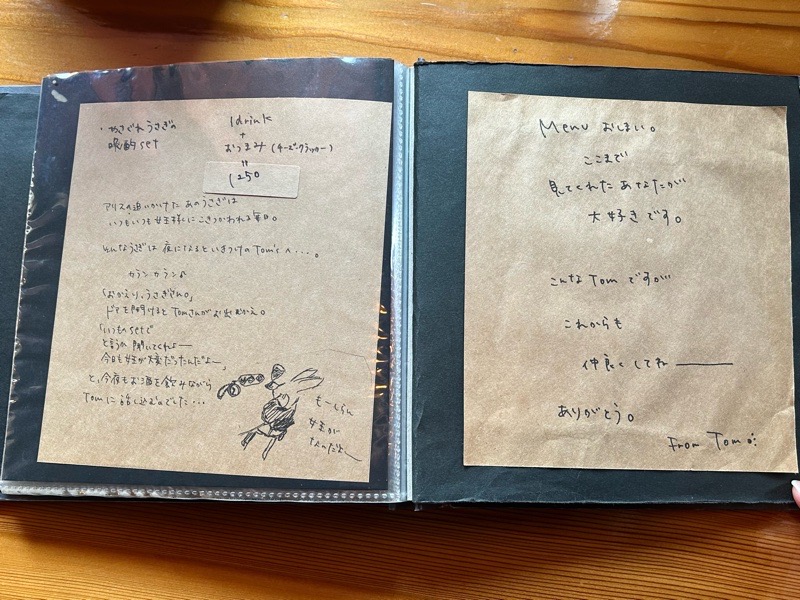 ・やさぐれうさぎの
晩酌set
1drink
+
おつまみ(チーズ・クラッカー)
=
1250
アリスの追いかけた あのうさぎは
いつもいつも女王様にこきつかわれる毎日。
そんなうさぎは 夜になると いきつけのTom'sへ・・・。
カランカラン♪
「おかえり、うさぎやん。」
ドアを開けると Tomさんがお出むかえ。
「いつものsetで
と言うか 聞いてくれよー
今日も女王が大変だったんだよー」
と、今夜もお酒を飲みながら
Tomに話し込むのでした・・・
もーしらん
女王が
なんだよー
Menu おしまい。
ここまで
見てくれた あなたが
大好きです。
こんな Tom ですが
これからも
仲良くしてね――
ありがとう。
From Tom